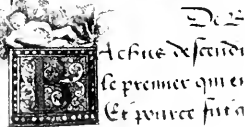 De B
Achus descendi
le premier qui en
Et pource fut a